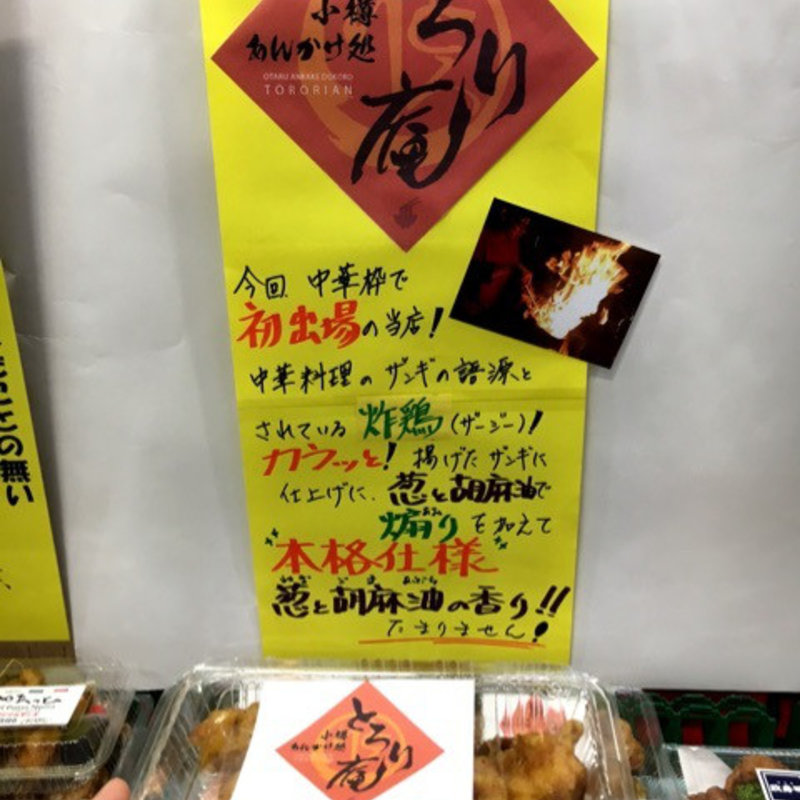 小樽
あんかけ処
OTARU ANKAKE DOKORO
TORORIAN
とろり
庵
今回 中華枠で
初出場の当店!
中華料理のザンギの語源と
されている 炸鶏(ザージー)!
カラーッと! 揚げたザンギに
仕上げに、葱と胡麻油で
煽りを加えて
あお
"本格仕様"
葱と胡麻油の香り!!
ねぎ ごま あぶら
たまりません!
ことの無い
小樽
あんかけ処
とろり
庵